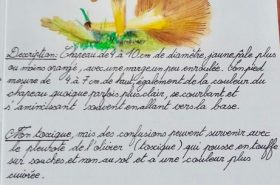 Description: Chapeau de 4 à 10 cm de diamètre, jaune pâle plus
ou moins orangé, avec une marge un peu enroulée. Son pied
mesure de 4 à 7 cm de haut également de la couleur du
chapeau quoique parfois plus clair, se courbant et
s'amincissant souvent en allant vers la base.
Non toxique, mais des confusions peuvent survenir avec
le pleurote de l'olivier (toxique) qui pousse en touffe
sur souches et non au sol et a une couleur plus
cuivrée.